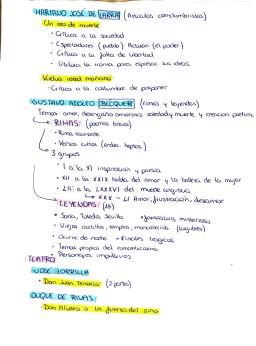 MARIANO JOSÉ DE LARRA (Artículos constumbristas)
Un reo de muerte
• Crítica a la sociedad
• Espectadores (pueblo) Actúan (el poder)
• Crítica a la falta de libertad
• Utiliza la ironía para expresar sus ideas.
Vuelva usted mañana
• Crítica a la costumbre de posponer
GUSTAVO ADOLFO BÉCQUER (rimas y leyendas)
Temas amor, desengaño amoroso, soledad y muerte y creación poética
RIMAS: (poemas breves)
• Rima asonante
• Versos cultos (endec. heptas)
3 grupos
• I a la XI inspiración y poesía
• XII a la XXIX habla del amor y la belleza de la mujer
• LII a la LXXXVI del muerte angustia
XXX - LI Amor, frustración, desamor
LEYENDAS: (18)
• Soria, Toledo, Sevilla
• fantasticos, misteriosos
• Viejos castillos, templos, monasterios (lugubres)
• Ocurre de noche
• Finales tragicos
• Temas propios del romanticismo
• Personajes impulsivos
TEATRO
JOSÉ ZORRILLA
• Don Juan Tenorio (2 partes)
DUQUE DE RIVAS
• Don Álvaro o la fuerza del sino